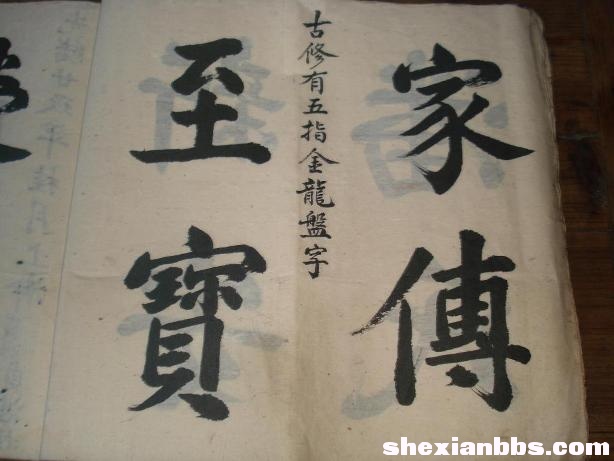 家傳
古修有五指金龍盤字
至寶
shexianbbs.com